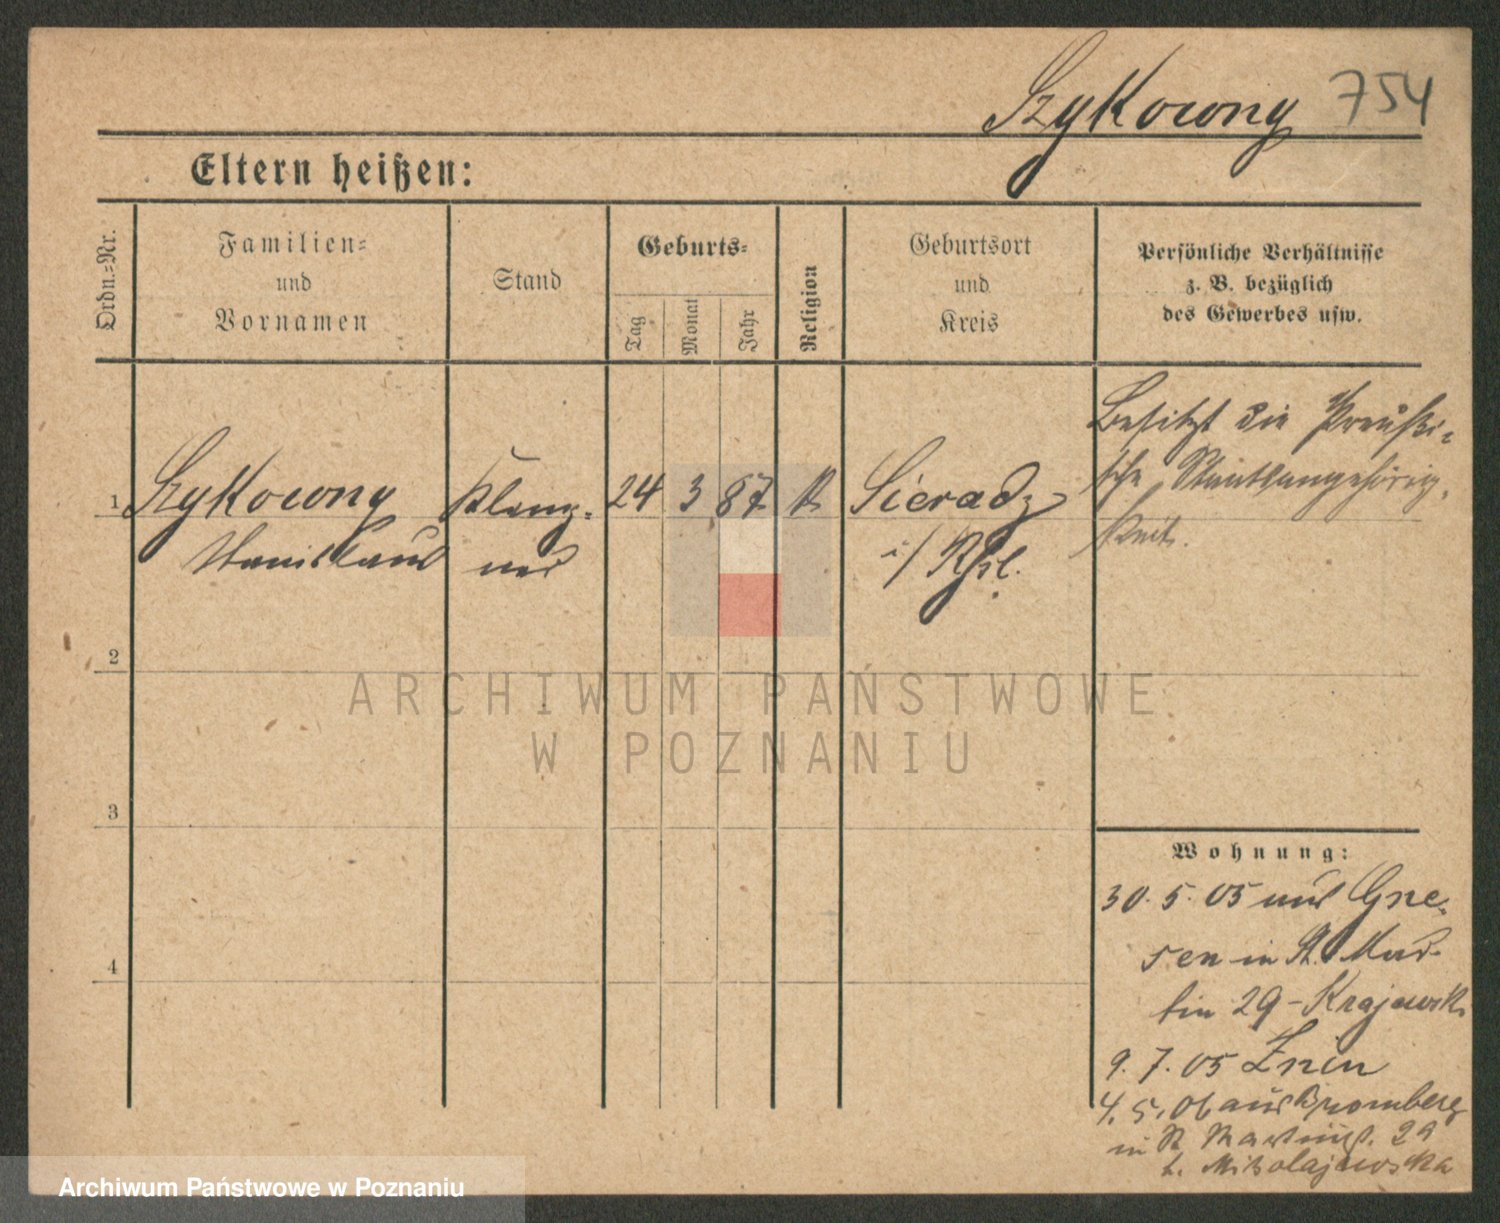 Szykowny 754
Eltern heißen:
Ordn.=Nr.
Familien=
und
Vornamen
Stand
Geburts=
Tag
Monat
Jahr
Religion
Geburtsort
und
Kreis
Persönliche Verhältnisse
z. B. bezüglich
des Gewerbes usw.
Besitzt die Preußi=
sche Staatsangehörig.
keit.
1 Szykowny Klemp= 24 3 87 K Sieradz
Stanislaus ner i/ Rßl.
2
3
4
Wohnung:
30. 5. 05 aus Gne.
sen in St. Mar
tin 29 - Krajewsk.
9. 7. 05 Znin
4. 5. 06 aus Bromberg
in St Martinst. 29
b. Mikolajewska
ARCHIWUM PAŃSTWOWE
W POZNANIU
Archiwum Państwowe w Poznaniu